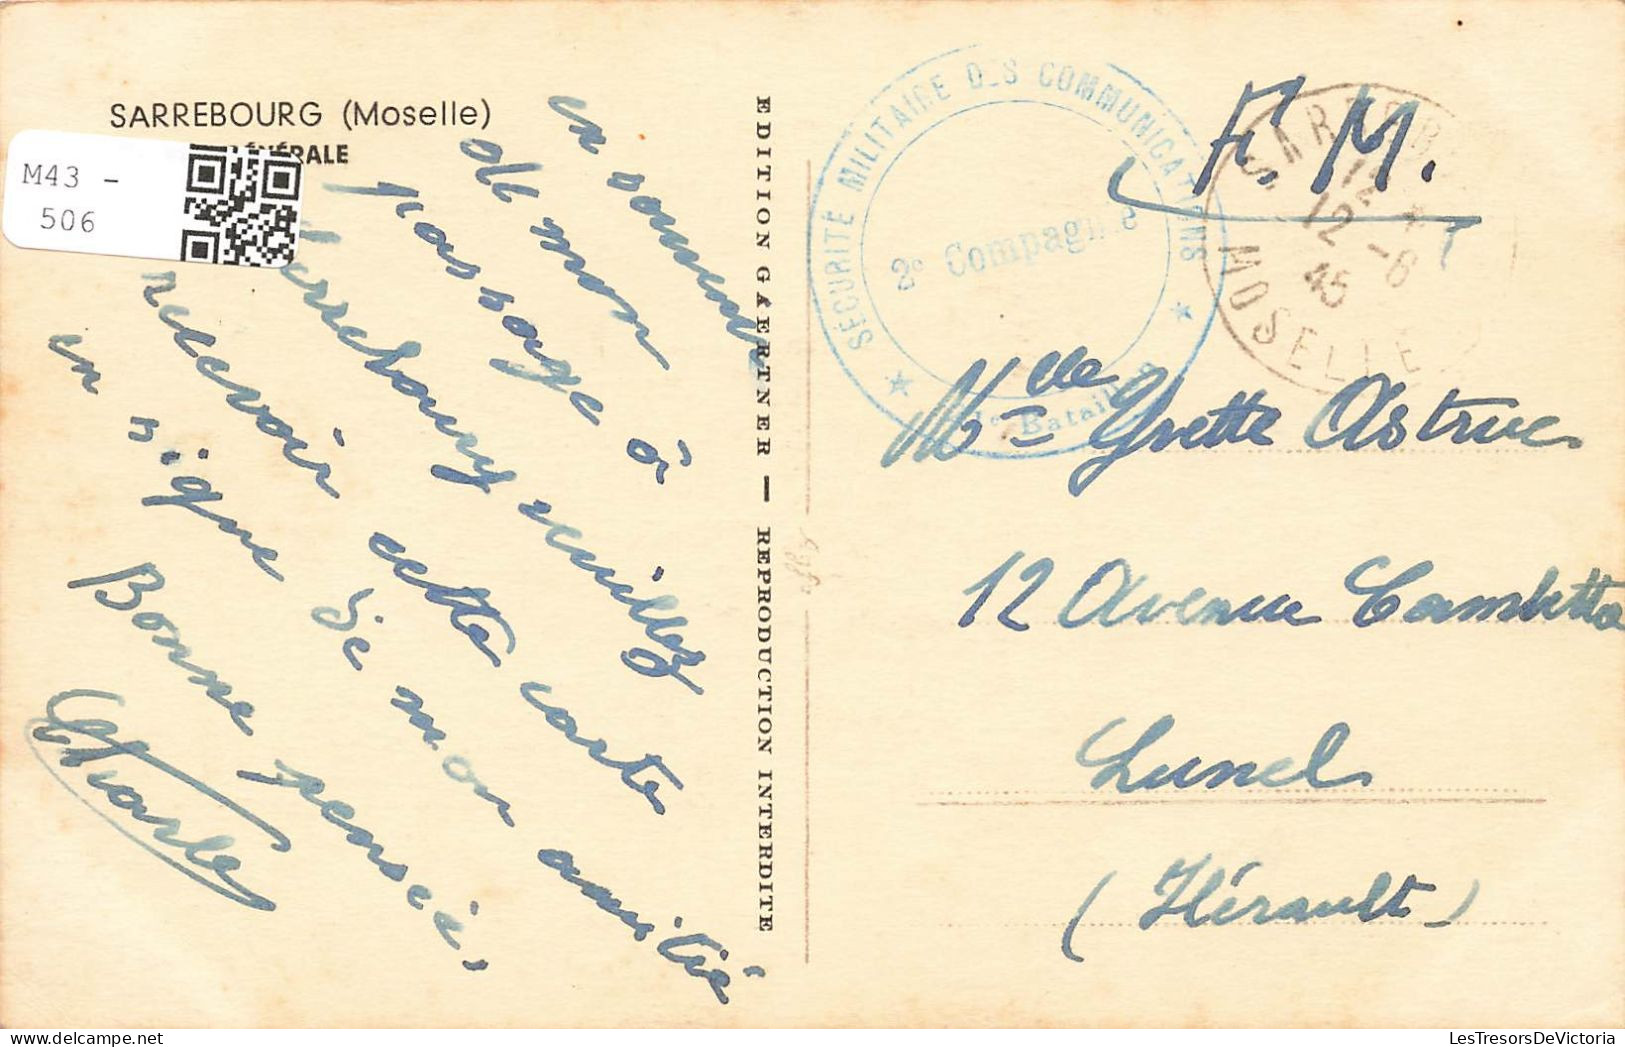 SARREBOURG (Moselle)
ÉNÉRALE
M43 -
506
en souvenir
de mon
passage à
Sarrebourg veuillez
recevoir cette carte
en signe de mon amitié
Bonne pensée,
Charles
EDITION GAERTNER — REPRODUCTION INTERDITE
SÉCURITÉ MILITAIRE DES COMMUNICATIONS
2e Compagnie
1er Bataillon
F. M.
SARREBOURG
12
12 -6
45
MOSELLE
Melle Yvette Astruc
12 Avenue Gambetta
Lunel
(Hérault)
LesTresorsDeVictoria